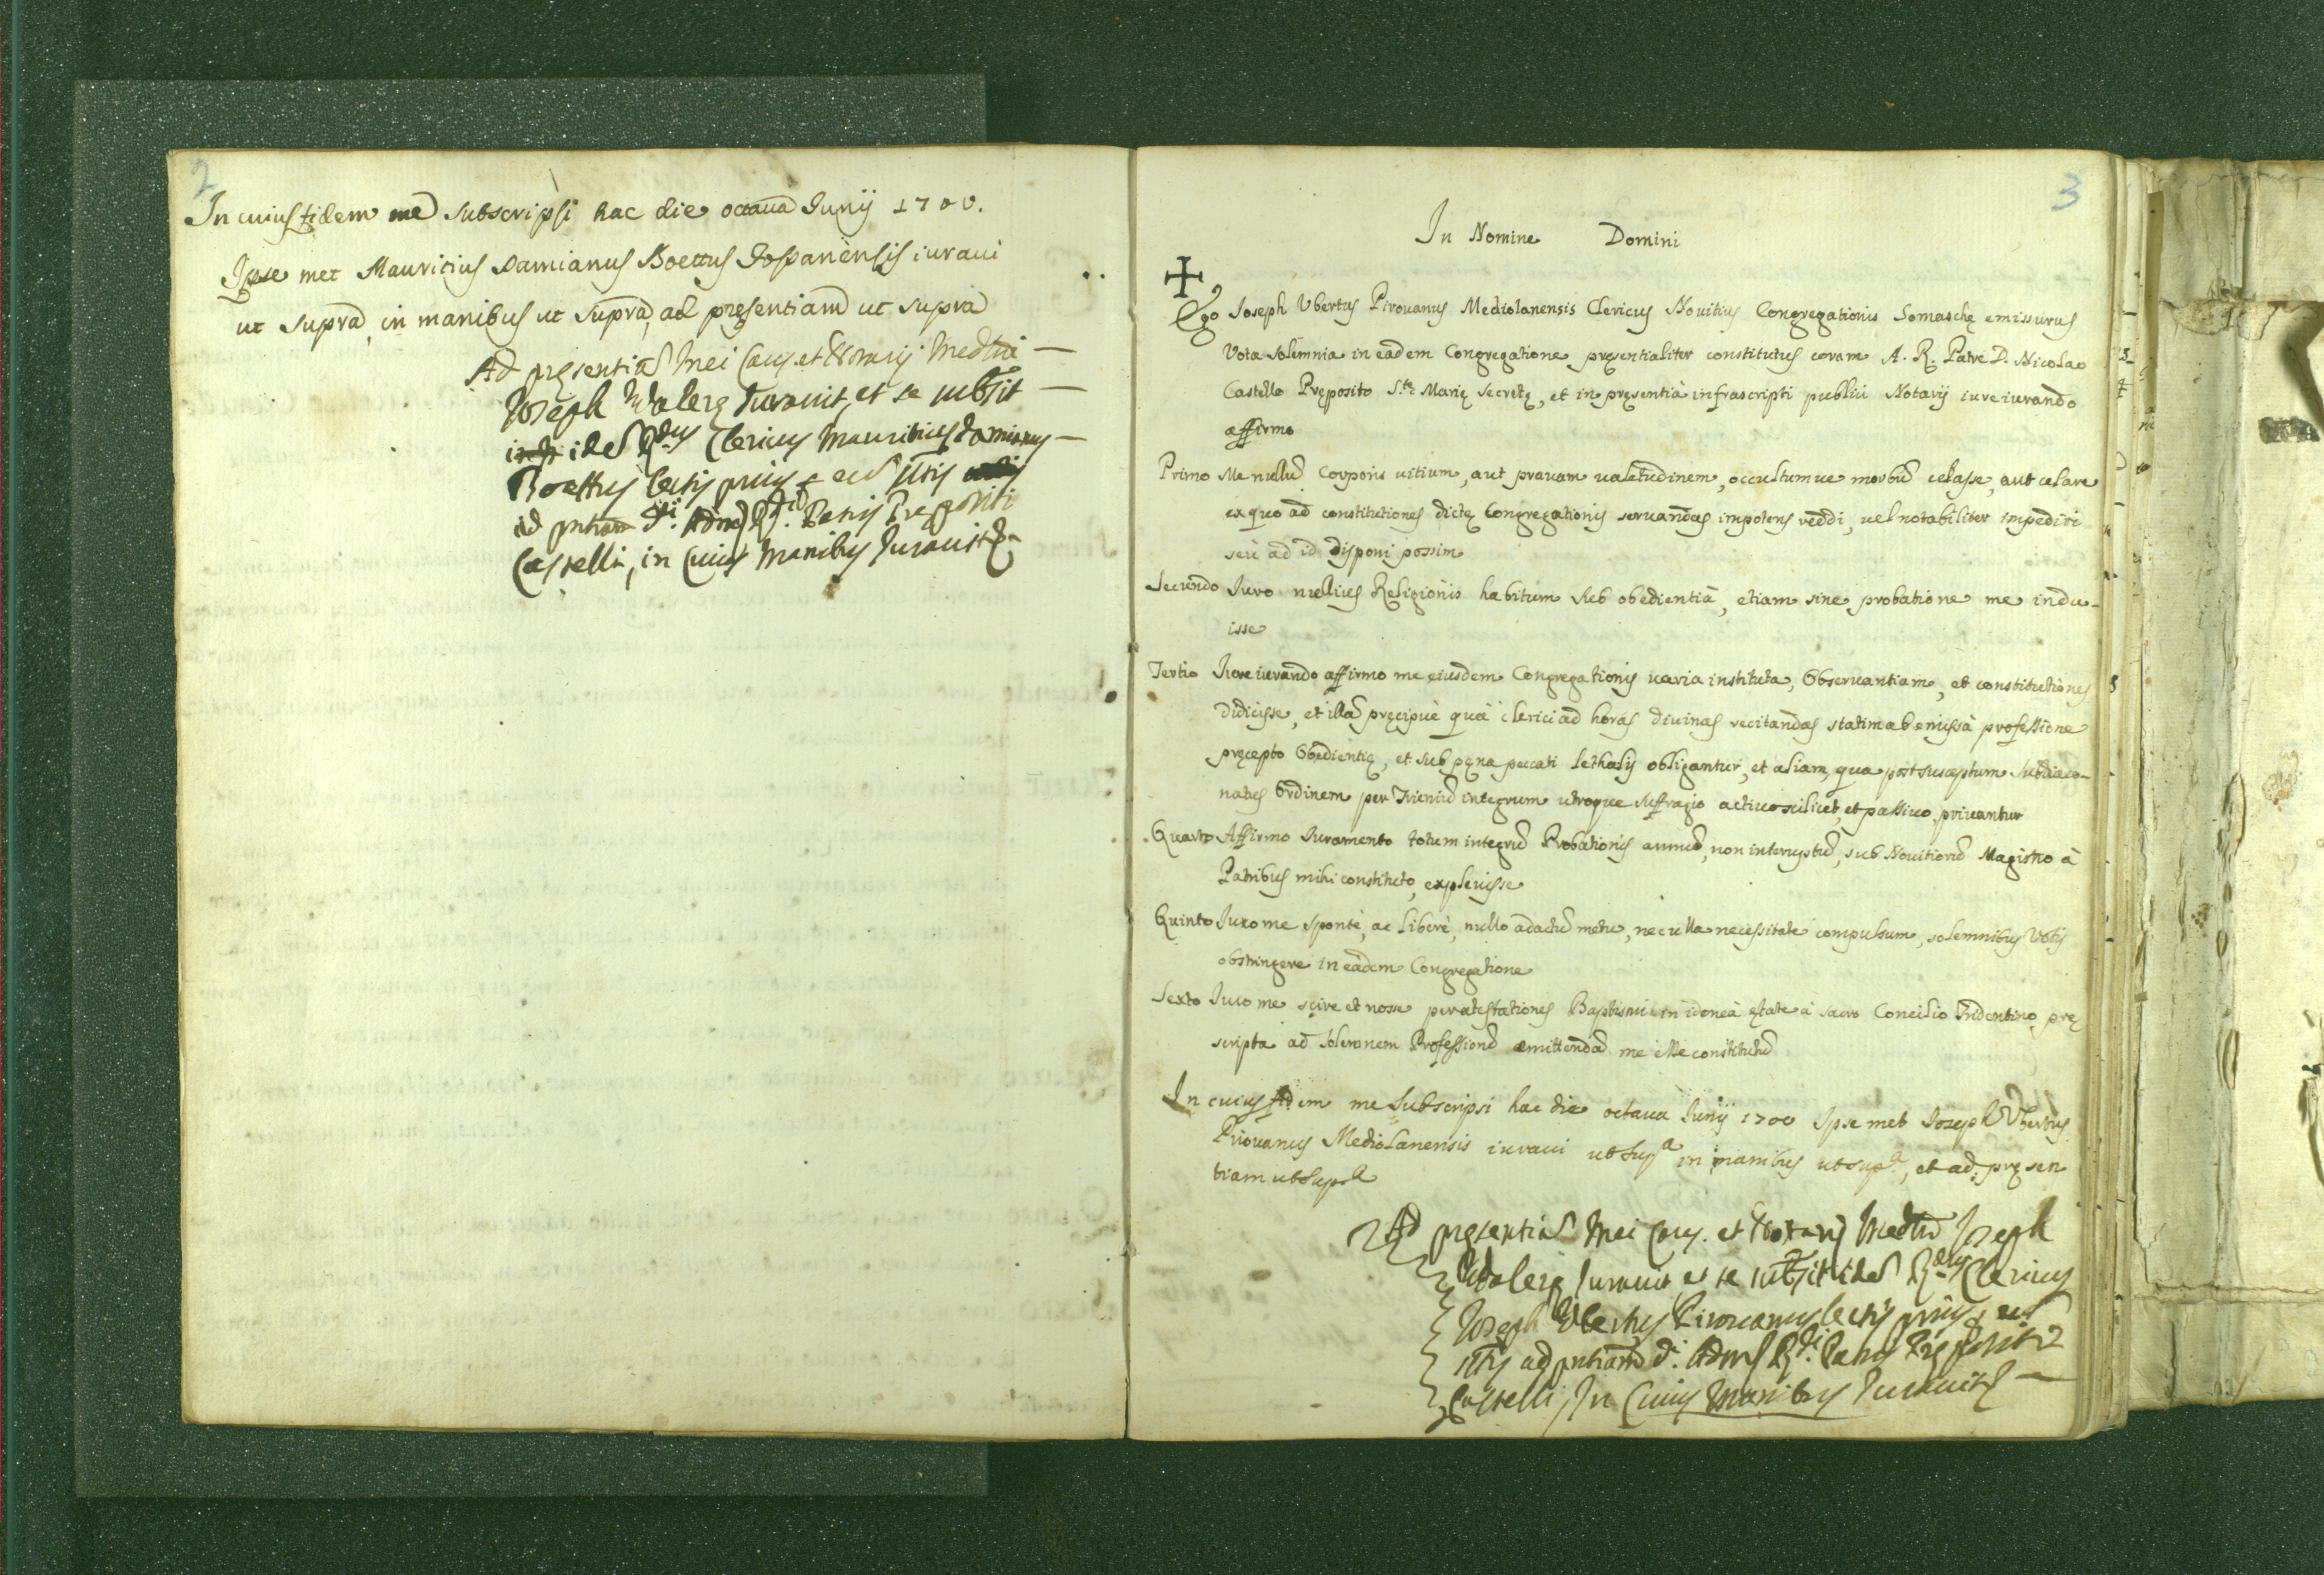 2
In cuius fidem me subscripsi hac die octaua Junij 1700.
Ipse met Mauritius Damianus Boettus Jospanensis iuraui
ut supra, in manibus ut supra, ad pręsentiam ut supra
Ad pręsentia mei Caus. et Notarij Medni —
Joseph Walerę Iurauit, et se subsit —
idem Rdus Clericus Mauritius Damianus —
Boettus lectis prius
ad pntiam di. Adm. Rdi. Patris Prepositi
Castelli, in Cuius Manibus Iurauit
3
In Nomine Domini
Ego Joseph Vbertus Pirouanus Mediolanensis Clericus Nouitius Congregationis Somaschę emissurus
Vota solemnia in eadem Congregatione pręsentialiter constitutus coram A. R. Patre D. Nicolao
Castello Pręposito S.tę Marię Secretę, et in pręsentià infrascripti publici Notarij iureiurando
affirmo
Primo Me nullu Corporis uitium, aut prauam ualetudinem, occultumue morbu celasse, aut celare
ex quo ad constitutiones dictę Congregationis seruandas impotens reddi, uel notabiliter impediri
seù ad id disponi possim
Secundo Iuro nullius Religionis habitum sub obedientià, etiam sine probatione me indu-
isse
Tertio Iureiurando affirmo me eiusdem Congregationis uaria instituta, Obseruantiam, et constitutiones
didicisse, et illa pręcipuè quà clerici ad horas diuinas recitandas statim ab emissà professione
pręcepto Obedientię, et sub pęna peccati lethalis obligantur, et aliam, qua post susceptum subdiaco-
natus Ordinem per Trieniu integrum utroque suffragio actiuo scilicet, et passiuo priuantur
Quarto Affirmo Iuramento totum integru Probationis annu, non interruptu, sub Nouitioru Magistro à
Patribus mihi constituto, expleuisse
Quinto Iuro me spontè, ac liberè, nullo adactu metu, nec ulla necessitate compulsum, solemnibus Votis
obstringere in eadem Congregatione
Sexto Iuro me scire et nosse per atestationes Baptismi in idoneà ętate à sacro Concilio Tridentino prę
scripta ad solemnem Professione emittenda me esse constitutu
In cuius fidem me subscripsi hac die octaua Iunij 1700 Ipse met Joseph Vbertus
Pirouanus Mediolanensis iuraui ut supa in manibus ut supa, et ad pręsen
tiam ut supra
Ad pręsentia mei Caus. et Notarij Medni Joseph
Walerę Iurauit, et se subsit idem Rdus Clericus
Joseph Vbertus Pirouanus lectis prius
ad pntiam di. Adm. Rdi. Patris Prępositi
Castelli, In Cuius Manibus Iurauit